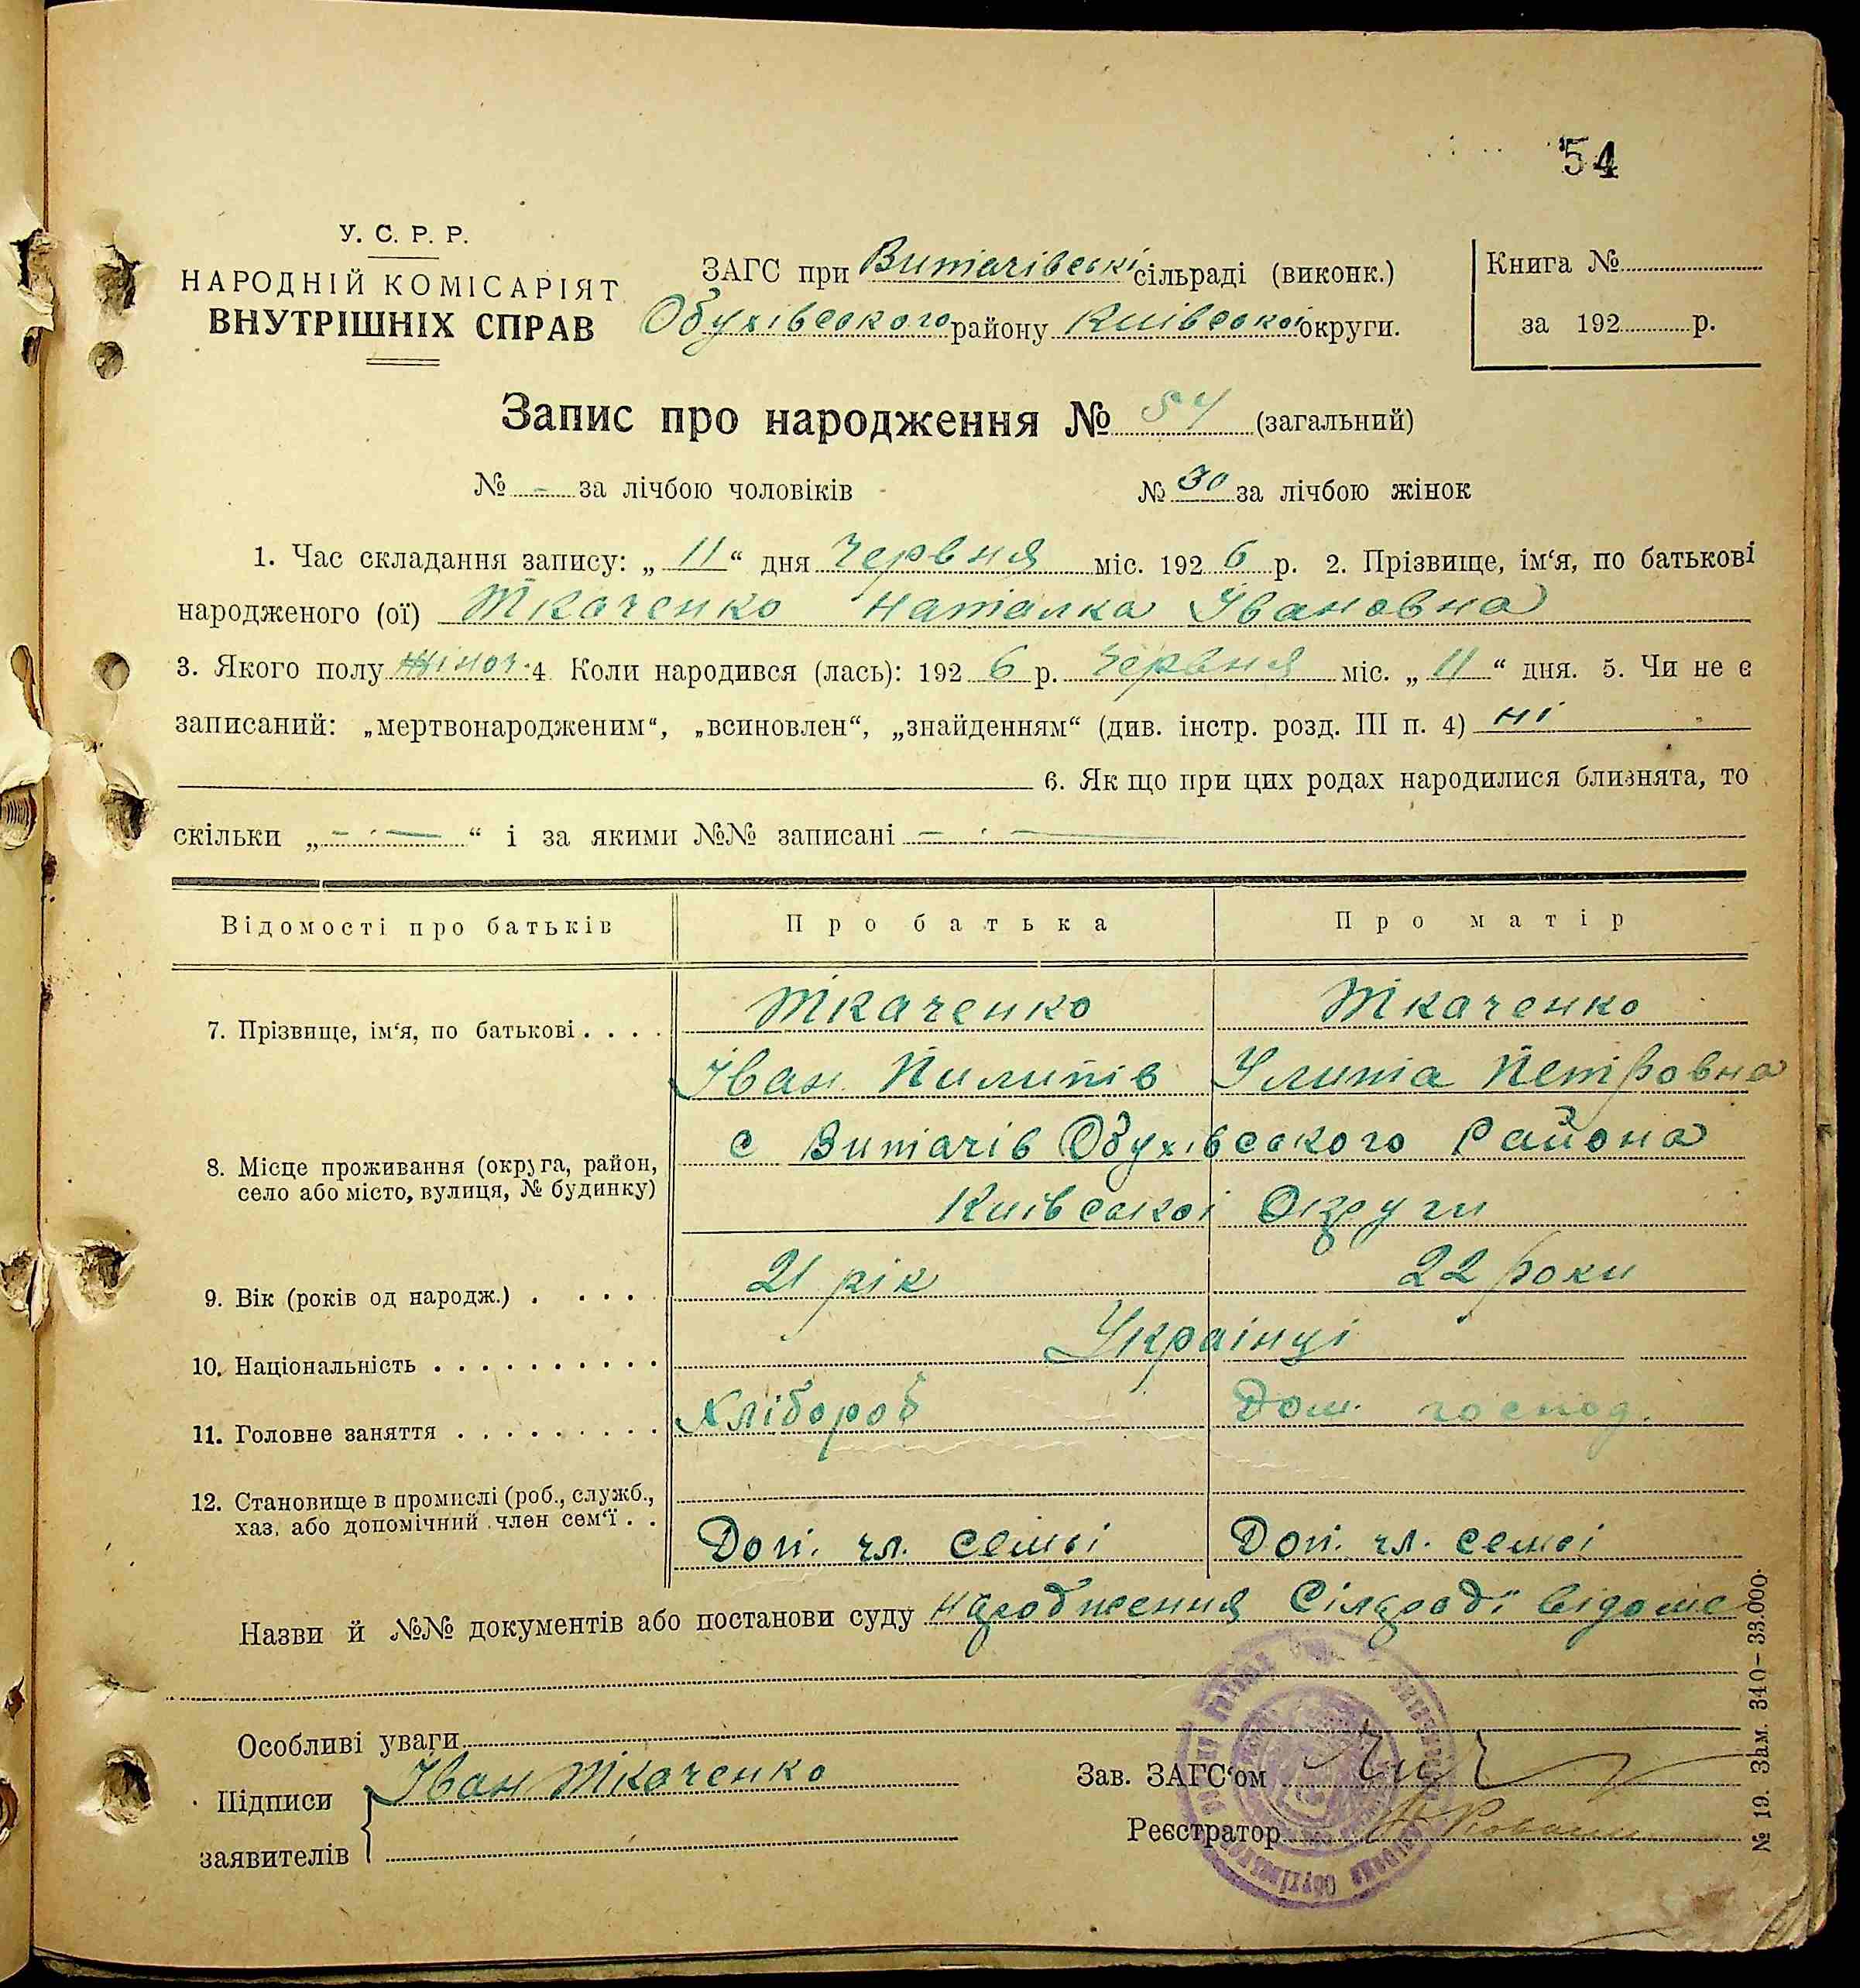 54
У. С. Р. Р.
НАРОДНІЙ КОМІСАРІЯТ
ВНУТРІШНІХ СПРАВ
ЗАГС при Витачівські сільраді (виконк.)
Обухівського району Киівськоі округи.
Книга №
за 192 р.
Запис про народження № 54 (загальний)
№ - за лічбою чоловіків № 30 за лічбою жінок
1. Час складання запису: „ 11 “ дня Червня міс. 192 6 р. 2. Прізвище, ім‘я, по батькові
народженого (ої) Ткаченко Наталка Івановна
3. Якого полу жіноч. 4 Коли народився (лась): 192 6 р. Червня міс. „ 11 “ дня. 5. Чи не є
записаний: „мертвонародженим“, „всиновлен“, „знайденням“ (див. інстр. розд. III п. 4) ні
6. Як що при цих родах народилися близнята, то
скільки „ - . — “ і за якими №№ записані - . —
Відомості про батьків Про батька Про матір
7. Прізвище, ім‘я, по батькові . . . . Ткаченко Ткаченко
Іван Пилипів Улита Петровна
8. Місце проживання (округа, район, с Витачів Обухівського Района
село або місто, вулиця, № будинку) Киівськоі Округи
9. Вік (років од народж.) . . . . . 21 рік 22 роки
10. Національність . . . . . . . . . . Украінці
11. Головне заняття . . . . . . . . . Хлібороб Дом. господ.
12. Становище в промислі (роб., служб.,
хаз. або допомічний член сем‘ї . . Доп. чл. семьі Доп. чл. семьі
Назви й №№ документів або постанови суду народження Сілраді відоме
Особливі уваги
Підписи Іван Ткаченко
заявителів
Зав. ЗАГС‘ом
Реєстратор
№ 19. Зам. 340–33.000.